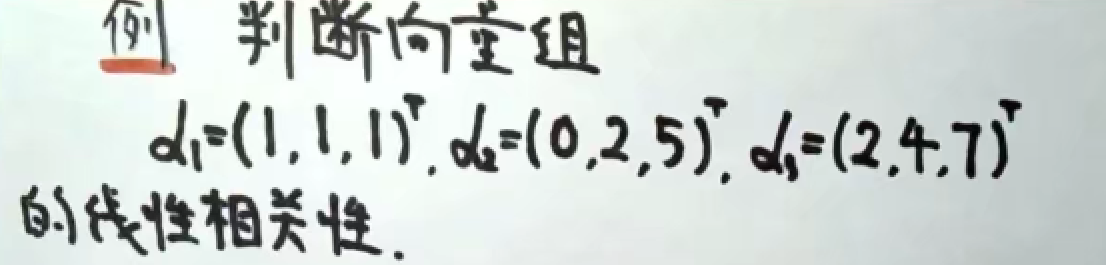 例 判断向量组
α₁=(1,1,1)ᵀ, α₂=(0,2,5)ᵀ, α₃=(2,4,7)ᵀ
的线性相关性.